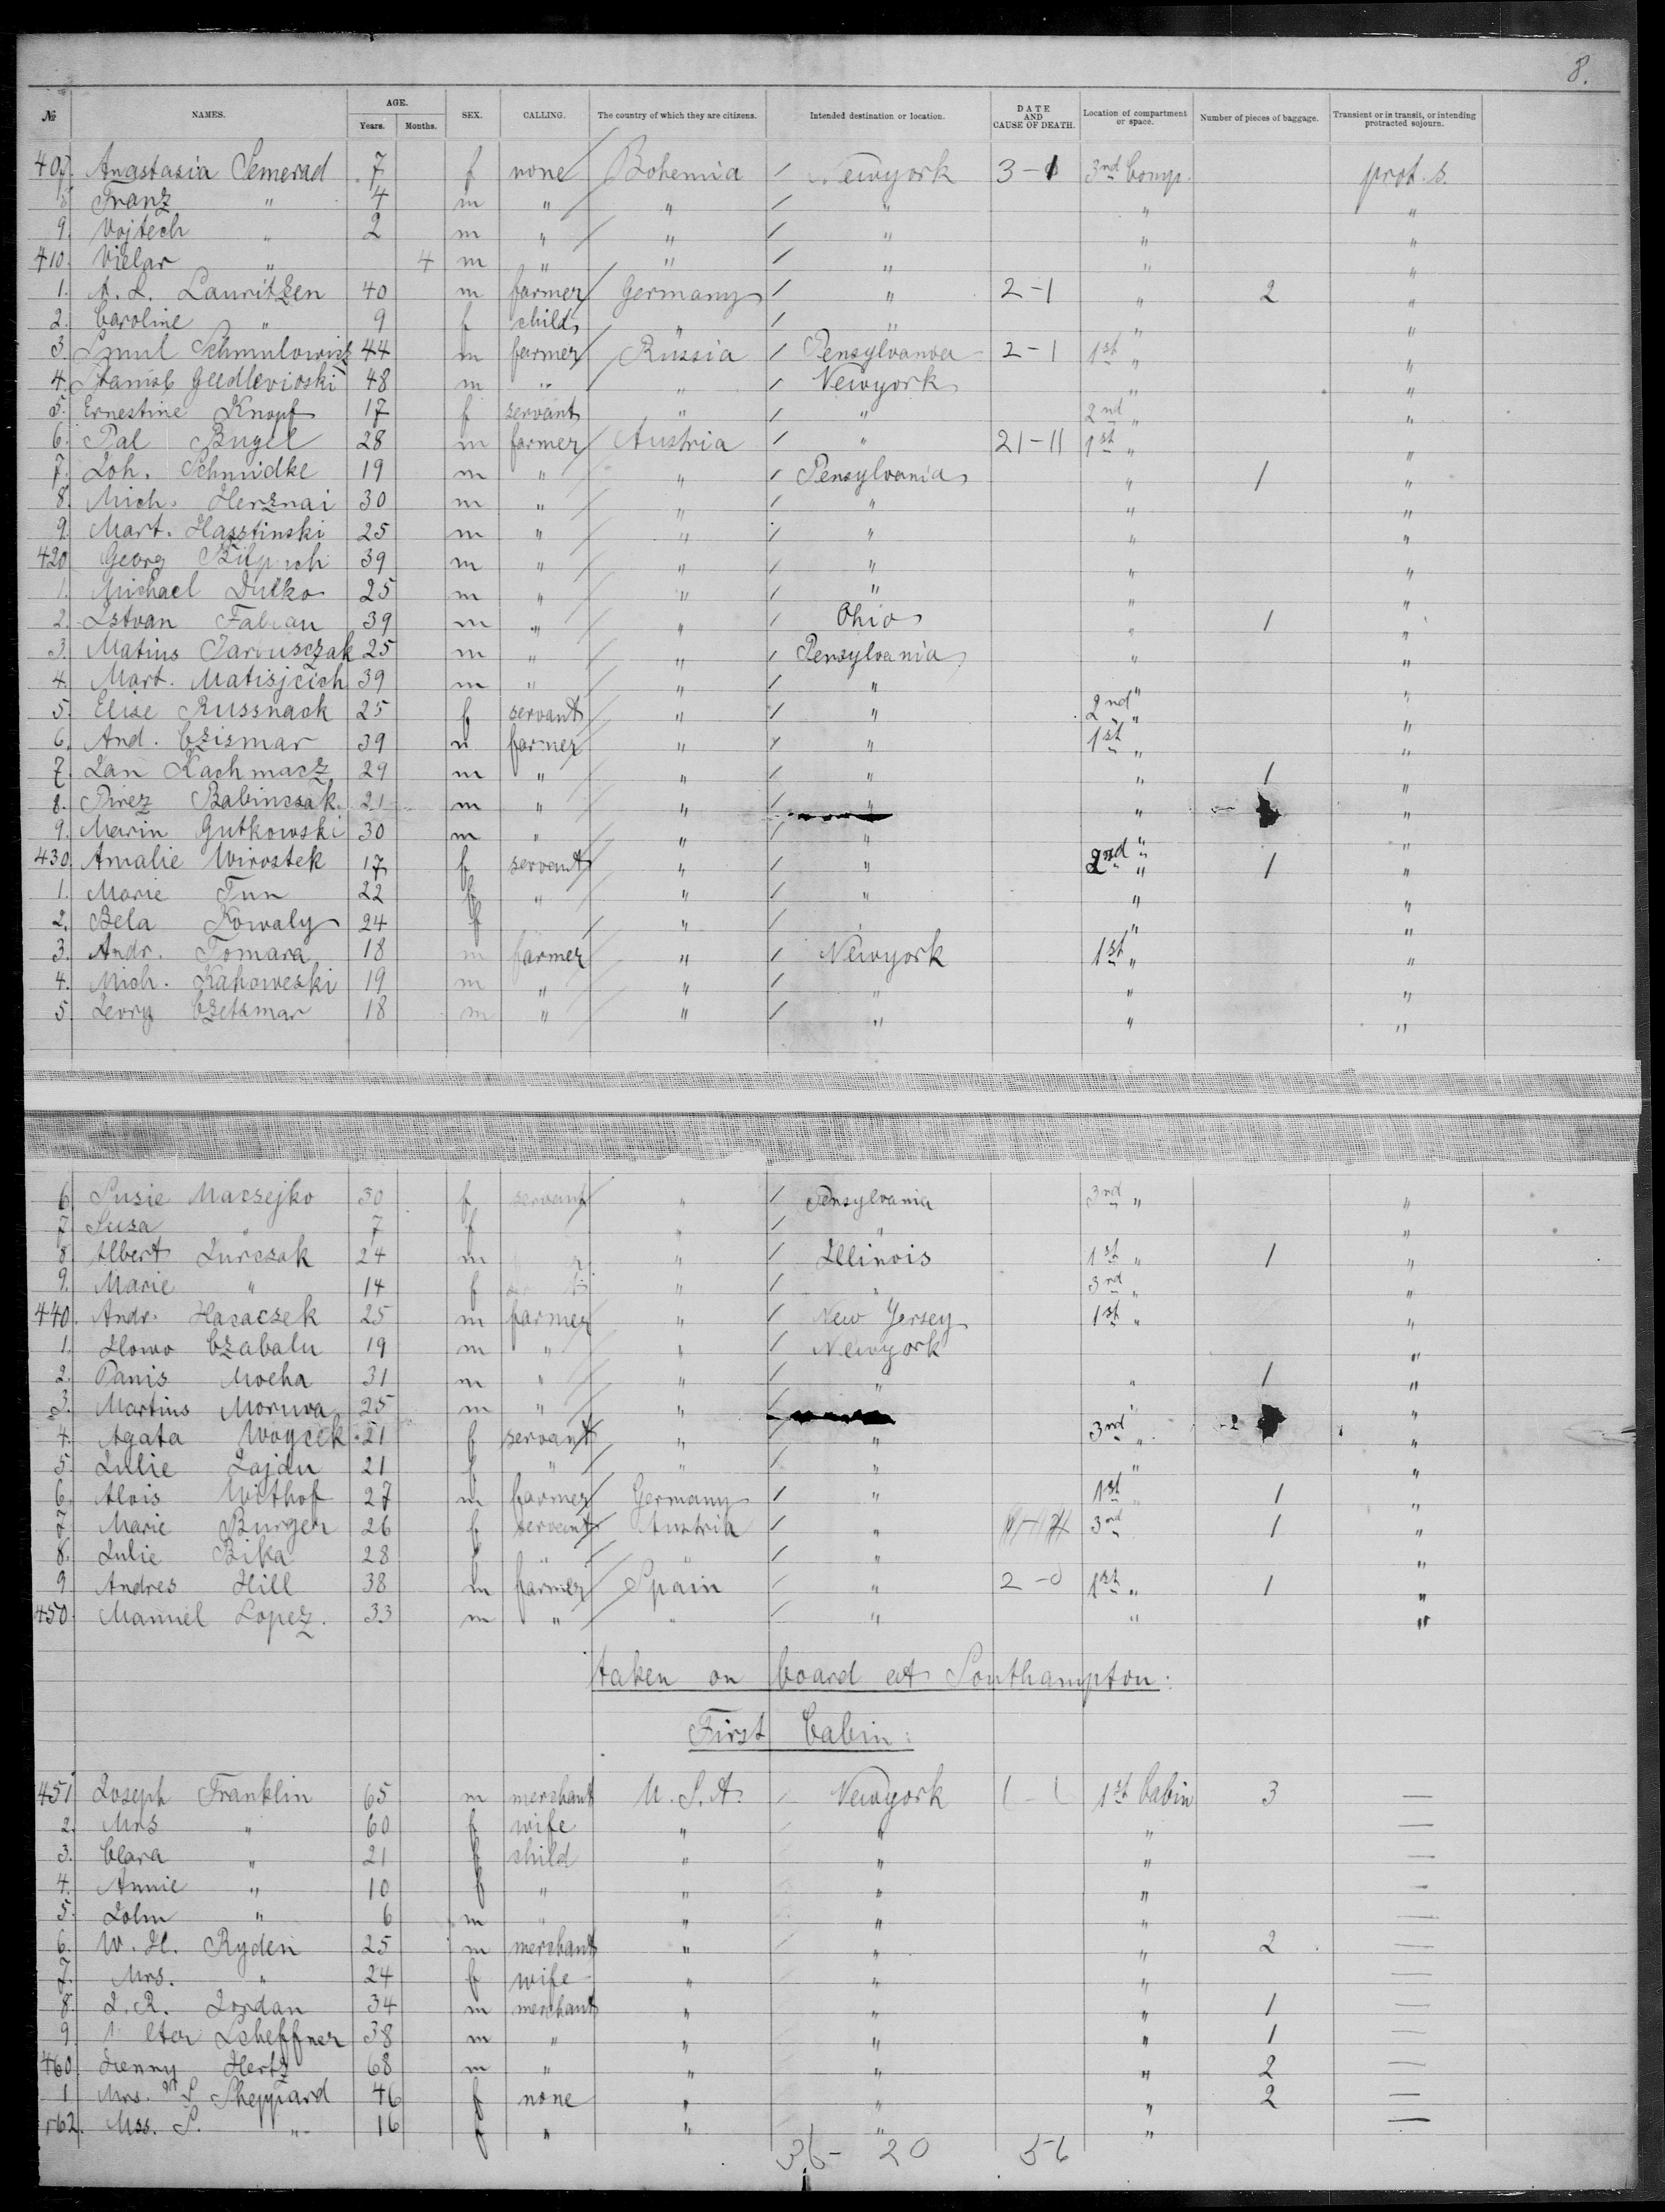 8.
№ NAMES. AGE. Years. Months. SEX. CALLING. The country of which they are citizens. Intended destination or location. DATE AND CAUSE OF DEATH. Location of compartment or space. Number of pieces of baggage. Transient or in transit, or intending protracted sojourn.
407. Anastasia Semerad 7 f none Bohemia / Newyork 3-1 3nd Comp. prot. s.
8. Franz " 4 m " " / " " "
9. Vojtech " 2 m " " / " " "
410. " 4 m " " / " " "
1. A. L. Lauritzen 40 m farmer Germany / " 2-1 " 2 "
2. Caroline " 9 f child " / " " "
3. Schmulowicz 44 m farmer Russia / Pensylvania 2-1 1st " "
4. 48 m " " / Newyork " "
5. Ernestine Knopf 17 f servant " / " 2nd " "
6. Pal Bugel 28 m farmer Austria / " 21-11 1st " "
7. Joh. Schmidke 19 m " " / Pensylvania " 1 "
8. Mich. Herznai 30 m " " / " " "
9. Mart. Hasztinski 25 m " " / " " "
420 Georg 39 m " " / " " "
1. Michael Dutko 25 m " " / " " "
2. Istvan Fabian 39 m " " / Ohio " 1 "
3. Matius Jarousczak 25 m " " / Pensylvania " "
4. Mart. Matisjcich 39 m " " / " " "
5. Elise Russnack 25 f servant " / " 2nd " "
6. And. Czismar 39 m farmer " / " 1st " "
7. Jan Kachmacz 29 m " " / " " 1 "
8. Pirez Babinczak 21 m " " / " " "
9. Marin Gutkowski 30 m " " / " " "
430. Amalie Wirostek 17 f servant " / " 2nd " 1 "
1. Marie Tun 22 f " " / " " "
2. Bela Kowaly 24 f " / " "
3. Andr. Tomara 18 m farmer " / Newyork 1st " "
4. Mich. Kahoweski 19 m " " / " " "
5. Czetsmar 18 m " " / " " "
6. Susie Maczejko 30 f servant " / Pensylvania 3rd " "
7. Susa " 7 f " / " "
8. Albert Jurczak 24 m " / Illinois 1st " 1 "
9. Marie " 14 f " / " 3rd " "
440. Andr. Haraczek 25 m farmer " / New Jersey 1st " "
1. Howo Czabalu 19 m " " / Newyork "
2. Panis Mocha 31 m " " / " " 1 "
3. Martius Moruva 25 m " " / " "
4. Agata Woycek 21 f servant " / " 3rd " "
5. Julie Lajdu 21 f " " / " " "
6. Alois Withof 27 m farmer Germany / " 1st " 1 "
7. Marie Burger 26 f servant Austria / " 3rd 1 "
8. Julie Bika 28 f " " / " "
9. Andres Hill 38 m farmer Spain / " 2-0 1st " 1 "
450. Manuel Lopez. 33 m " " / " " "
taken on board at Southampton:
First Cabin:
451 Joseph Franklin 65 m merchant U. S. A. / Newyork 1st Cabin 3 —
2. Mrs " 60 f wife " " " —
3. Clara " 21 f child " " " —
4. Annie " 10 f " " " " —
5. John " 6 m " " " " —
6. W. H. Ryden 25 m merchant " " " 2 —
7. Mrs. " 24 f wife " " " —
8. J. R. Jordan 34 m merchant " " " 1 —
9. Scheffner 38 m " " " " 1 —
460. Hertz 68 m " " " " 2 —
1 Mrs. Sheppard 46 f none " " " 2 —
462. Mss. S. " 16 f " " " " —
36- 20 56